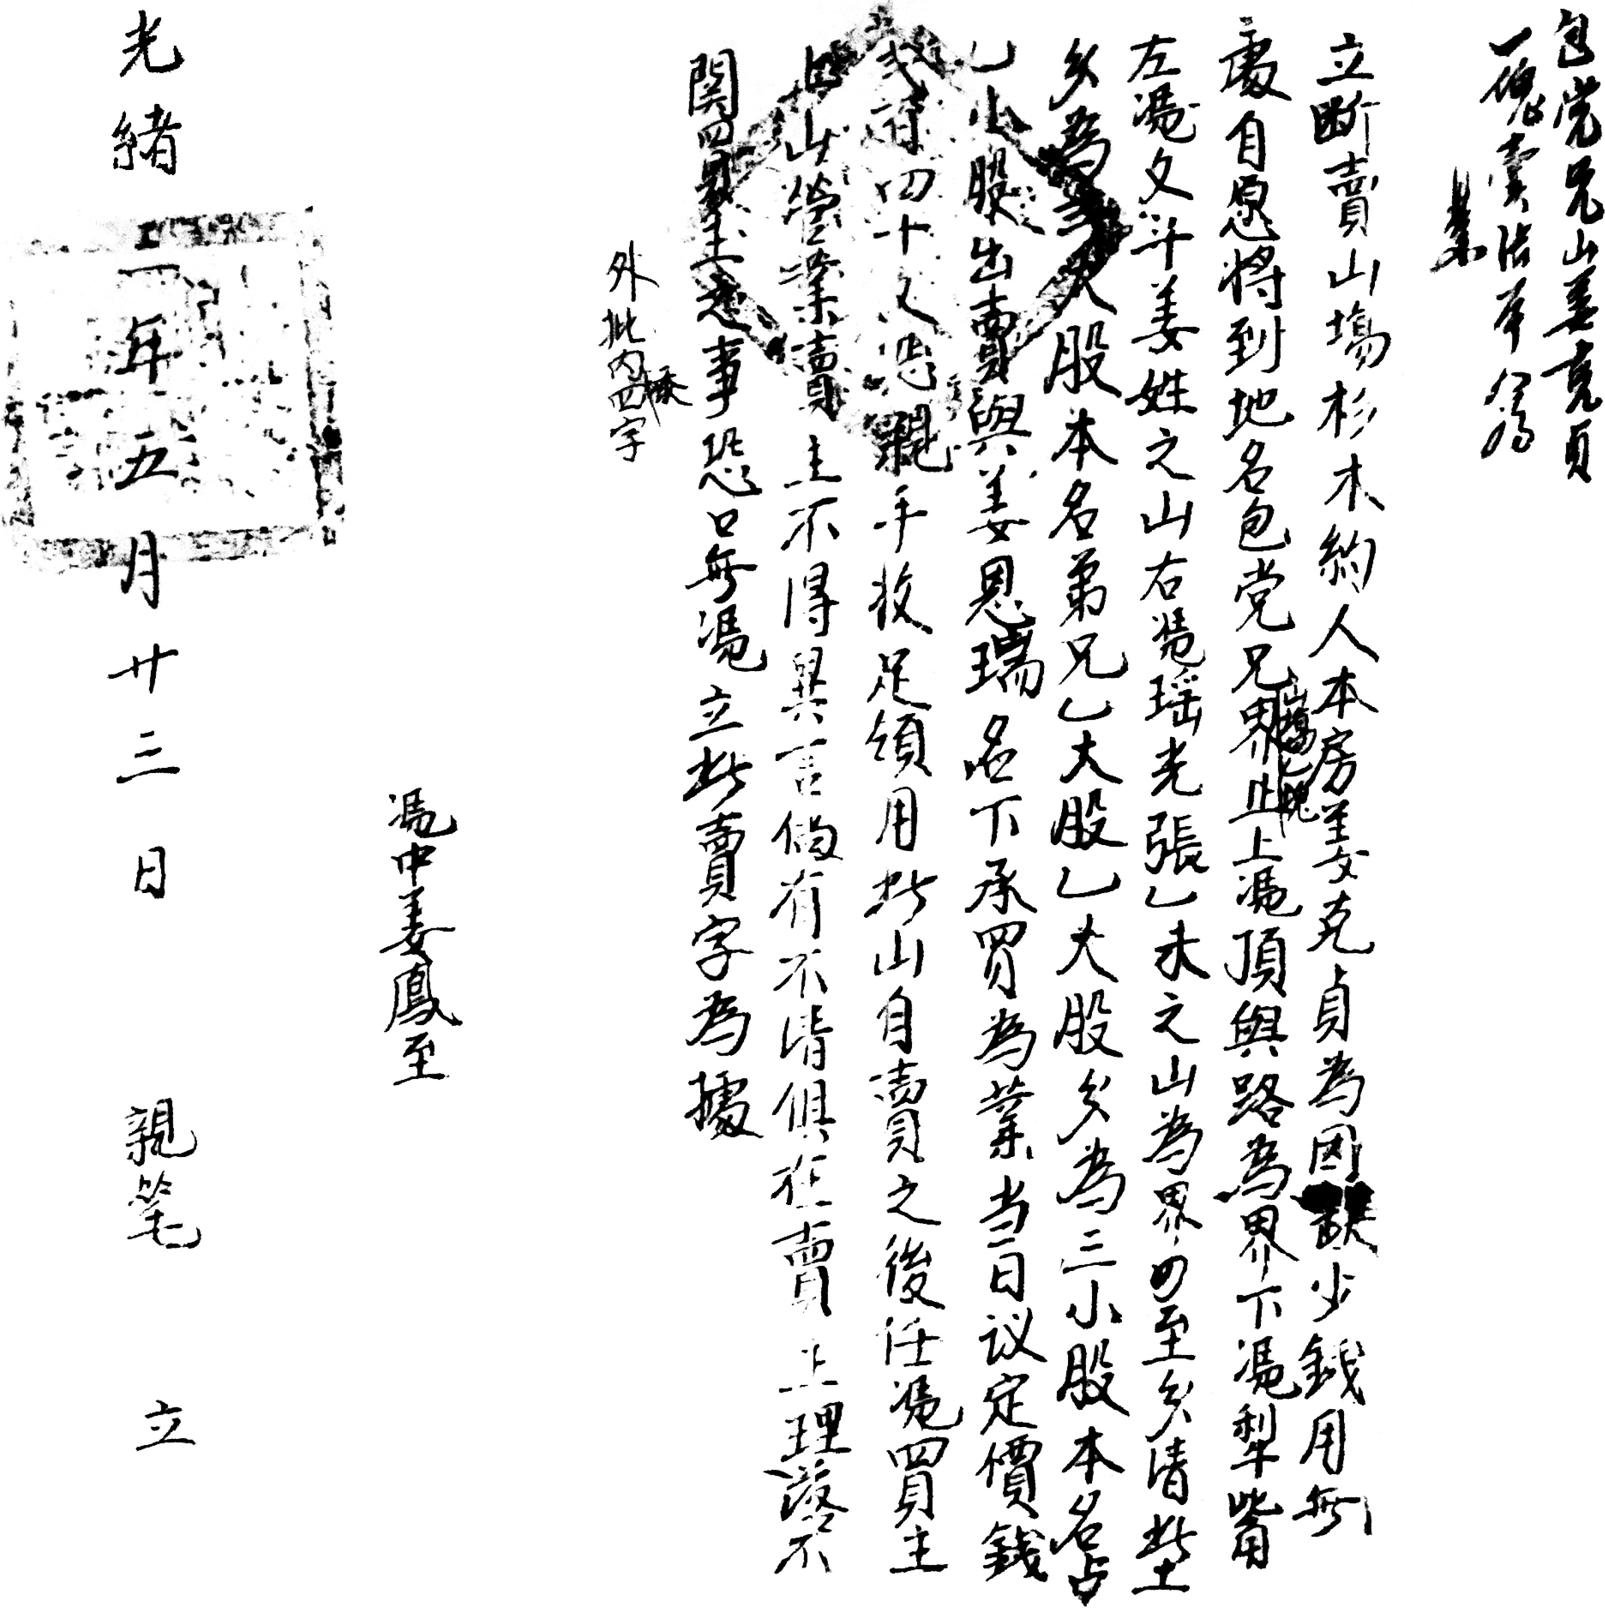 包党兄山姜克貞
一塊賣
業
立断賣山塲杉木約人本房姜克貞為因缺少銭用無
處自愿將到地名包党兄山塲乙塊界止上馮頂與路為界下馮犁嘴
左馮文斗姜姓之山右馮瑶光張乙未之山為界四至分清此土
分為 大股本名弟兄乙大股乙大股分為三小股本名占
乙小股出賣與姜恩瑞名下承買為業当日议定價銭
四十文 親手收足領用此山自賣之後任馮買主
山營業賣主不得異言倘有不清俱在賣主理落不
関買主之事恐口無馮立此賣字為據
外批内添四字
馮中姜鳳至
光緒二年五月廿三日 親筆 立